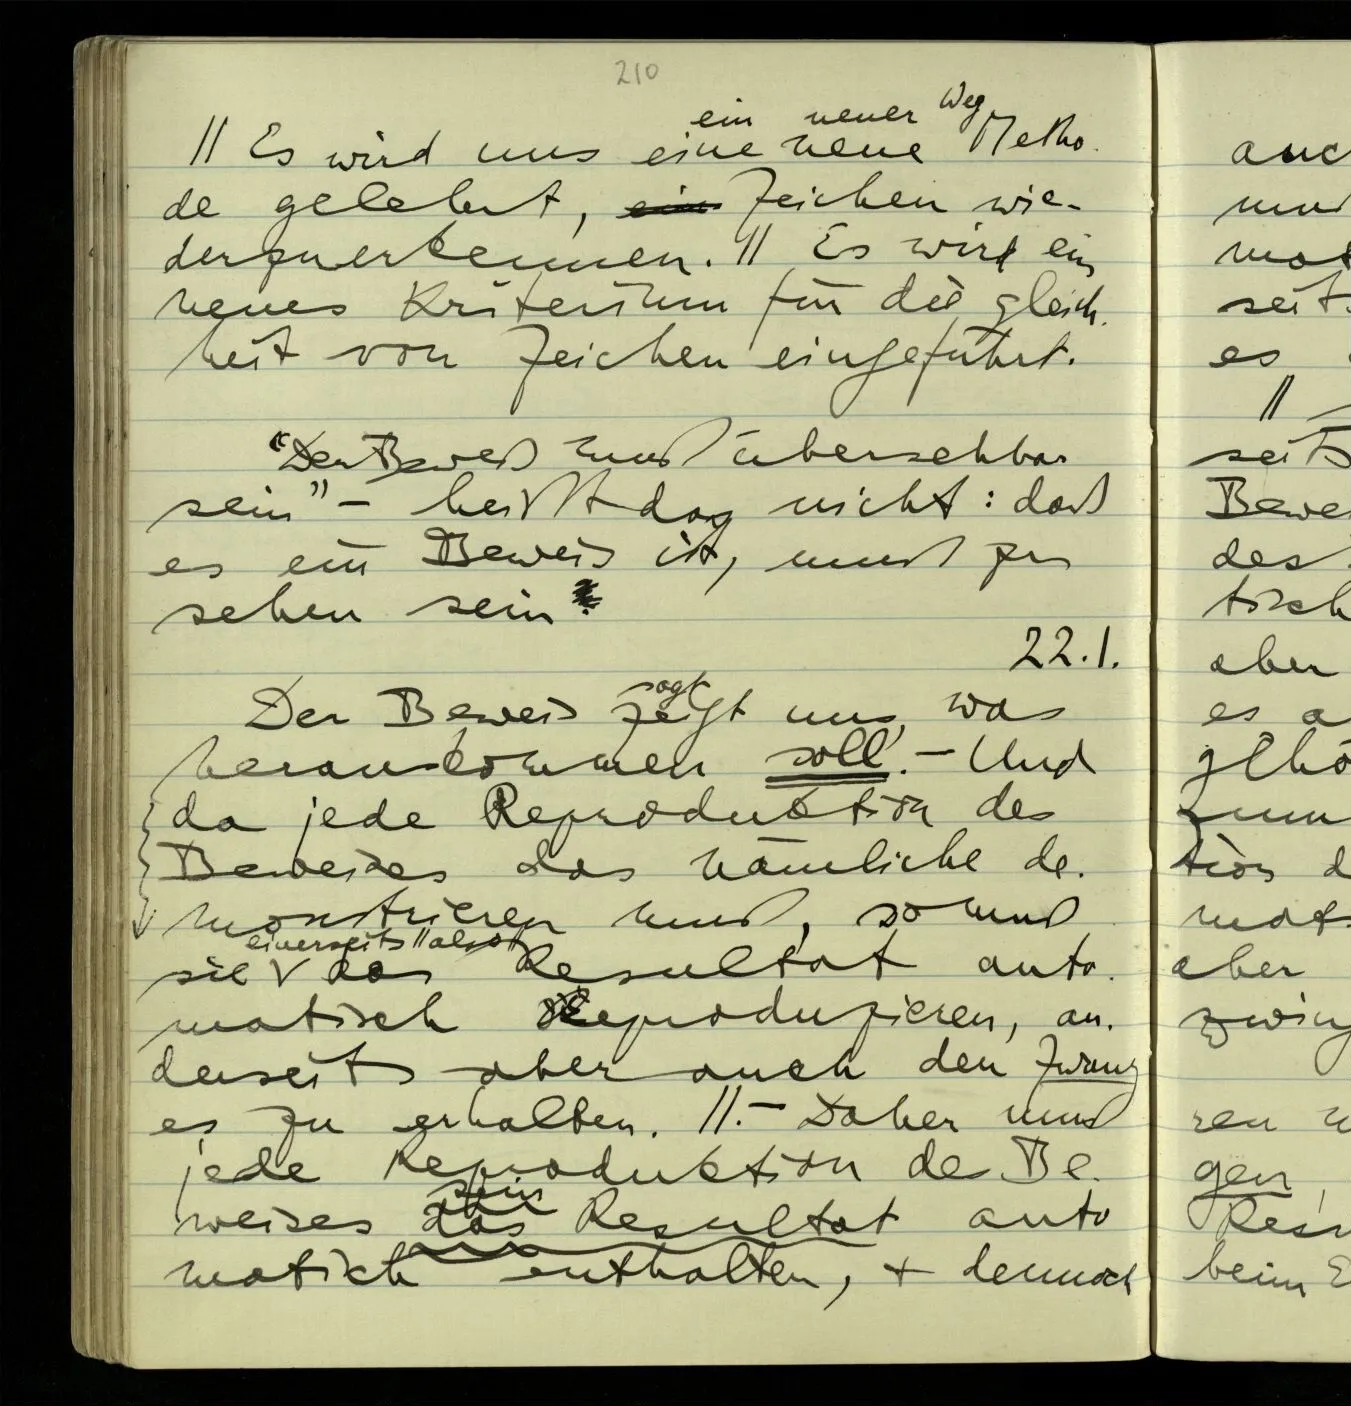 210
ein neuer Weg
|| Es wird uns eine neue Metho-
de gelehrt, ein Zeichen wie-
derzuerkennen. || Es wird ein
neues Kriterium für die Gleich-
heit von Zeichen eingeführt.
“Der Beweis muß übersehbar
sein” – heißt das nicht: daß
es ein Beweis ist, muß zu
sehen sein
22.1.
sagt
Der Beweis zeigt uns, was
herauskommen soll. – Und
da jede Reproduktion des
Beweises das nämliche de-
monstrieren muß, so muß
einerseits || also ||
sie das Resultat auto-
matisch reproduzieren, an-
derseits aber auch den Zwang
es zu erhalten. ||. – Daher muß
jede Reproduktion des Be-
sein
weises das Resultat auto
matisch enthalten, + dennoch
auc
mu
mat
seits
es
||
seits
Bewei
des
tisch
aber
es a
gehö
zum
tion d
mat
aber
zwing
ren
gen,
Resu
beim E